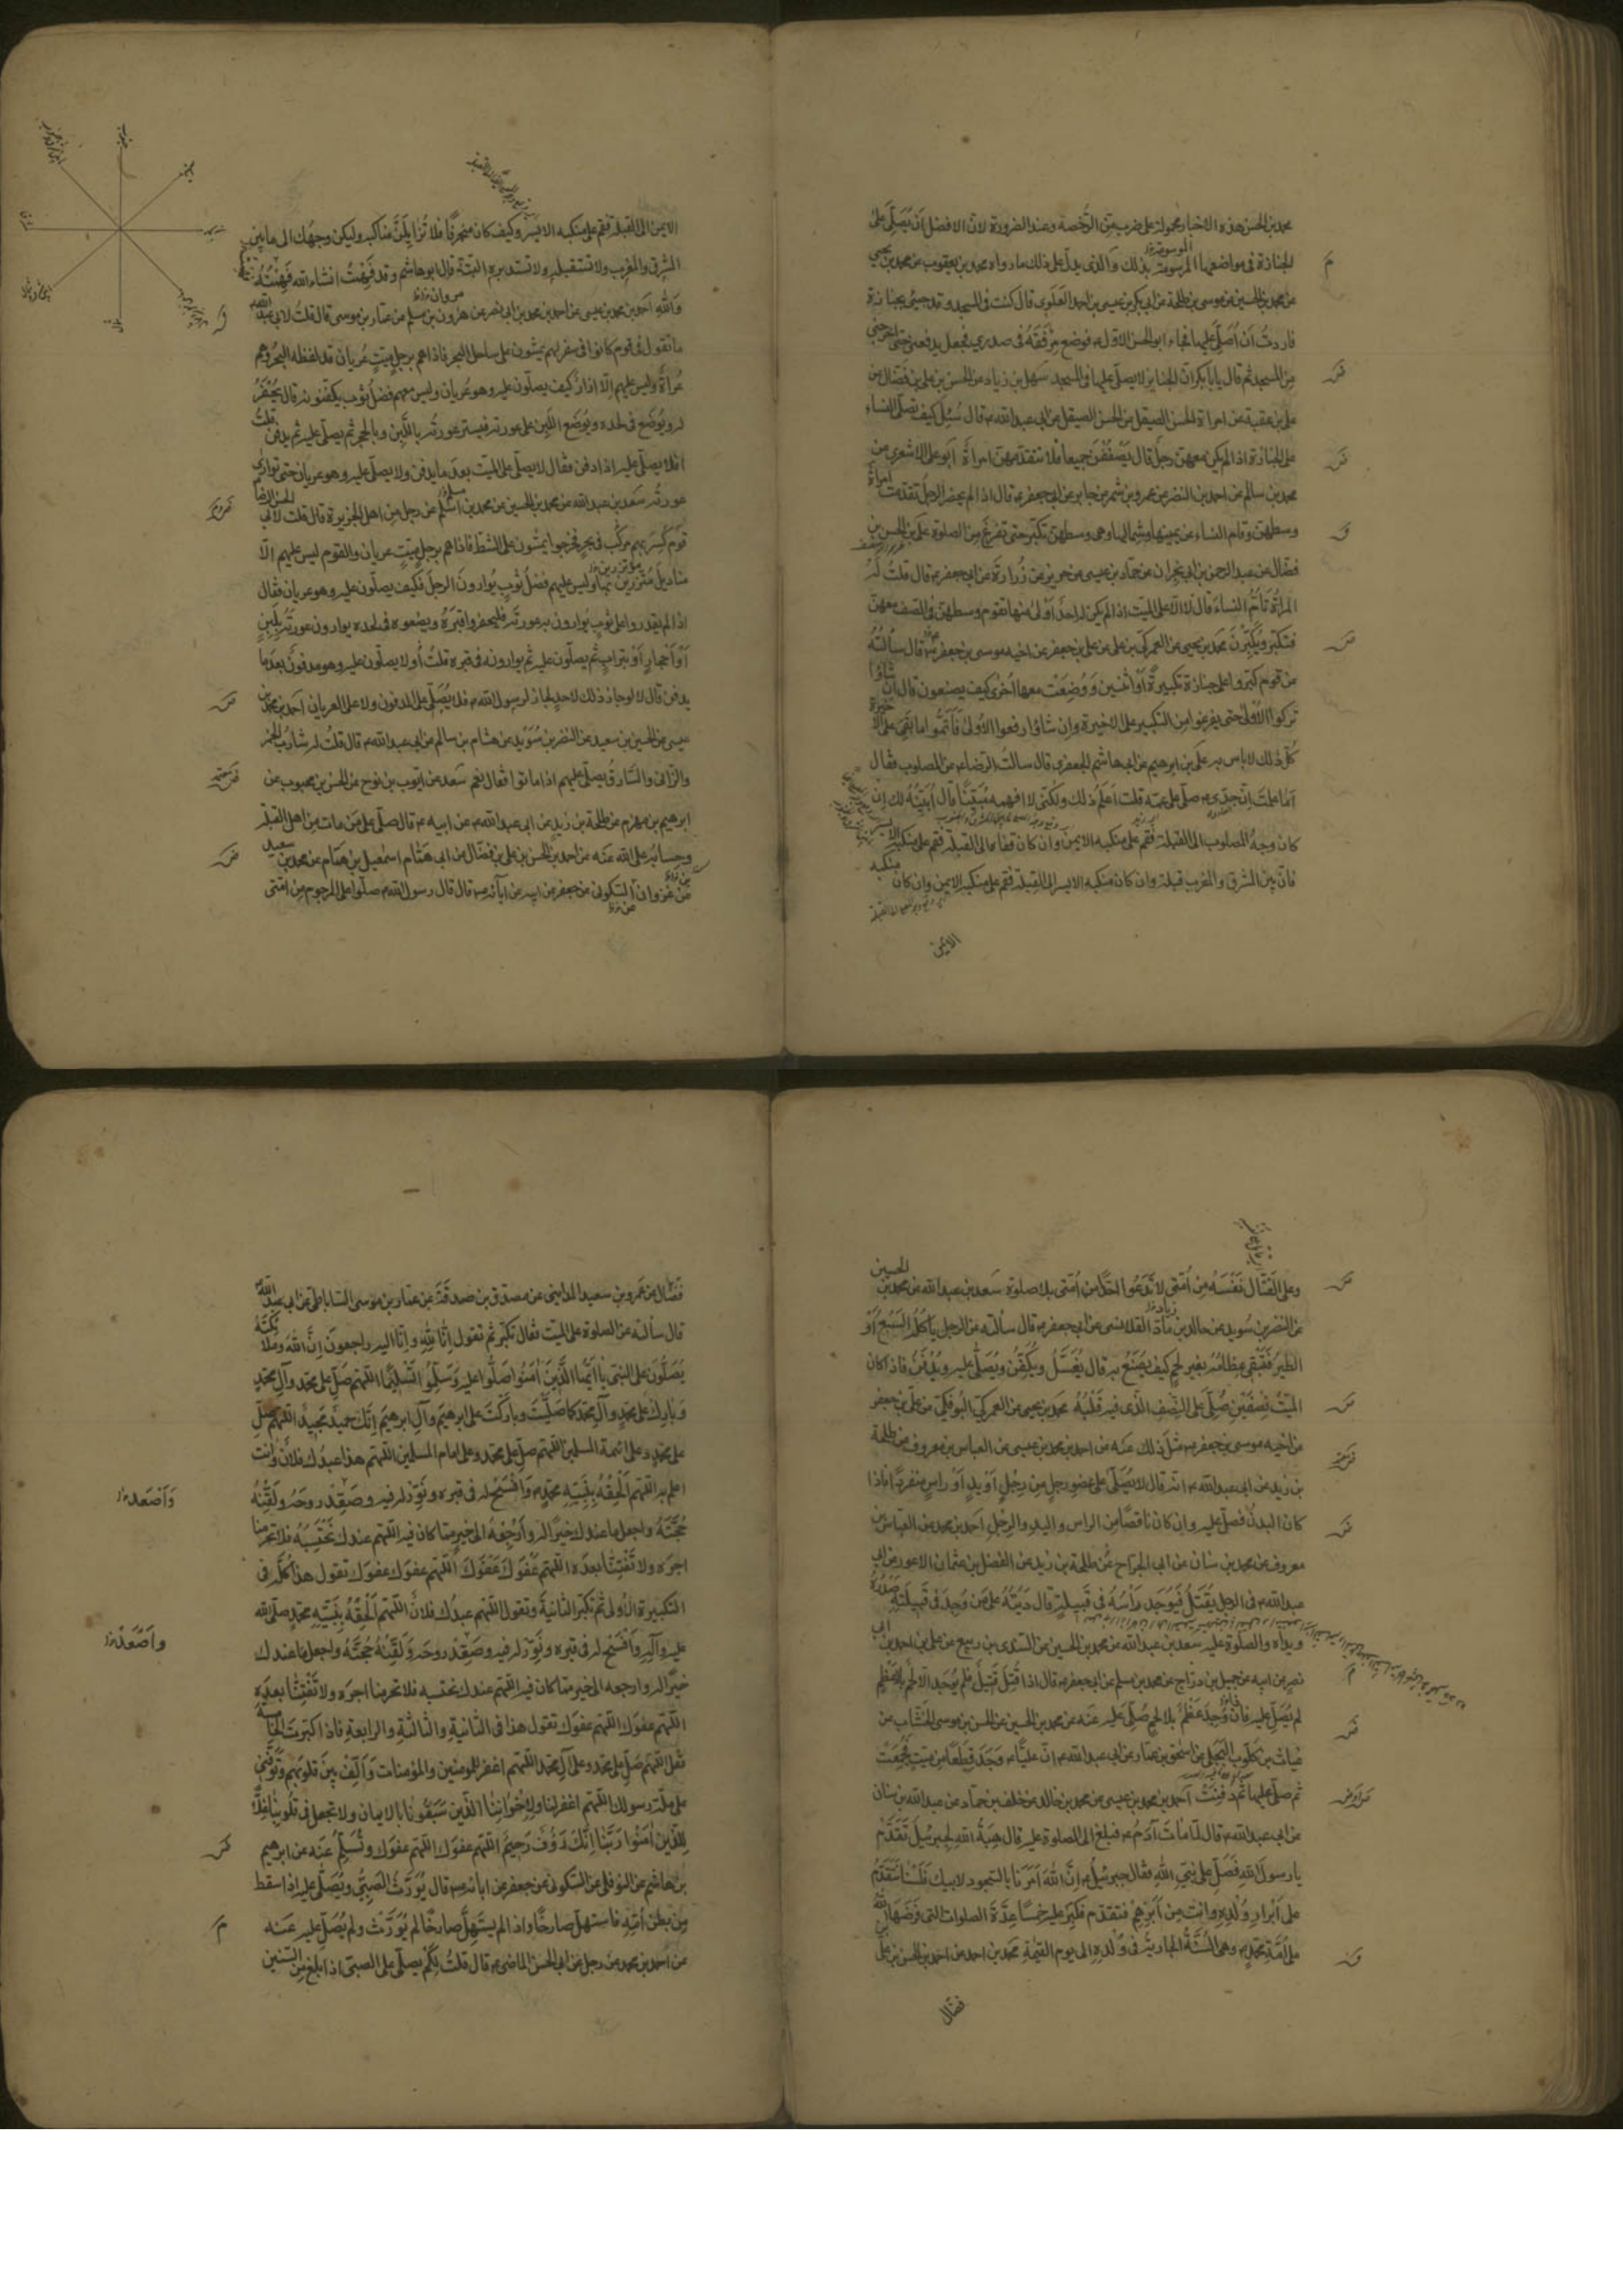 محمد بن الحسن هذه الاخبار محمولة على ضرب من الرخصة وعند الضرورة لان الافضل ان يصلى على
الجنازة فى مواضعها المرسومة بذلك والذى يدل على ذلك ما رواه محمد بن يعقوب عن محمد بن يحيى
عن محمد بن الحسين عن موسى بن طلحة عن ابى بكر بن عيسى بن احمد العلوى قال كنت فى المسجد وقد جيئ بجنازة
فاردت ان اصلى عليها فجاء ابو الحسن الاول ع فوضع مرفقه فى صدرى فجعل يدفعنى حتى اخرجنى
من المسجد ثم قال يا بابكر ان الجنايز لا يصلى عليها فى المسجد سهل بن زياد عن الحسن بن على بن فضال عن
على بن عقبة عن امراة الحسن الصيقل عن الحسن الصيقل عن ابى عبد الله ع قال سئل كيف تصلى النساء
على الجنازة اذا لم يكن معهن رجل قال يصففن جميعا فلا تتقدمهن امراة ابو على الاشعرى عن
محمد بن سالم عن احمد بن النضر عن عمرو بن شمر عن جابر عن ابى جعفر ع قال اذا لم يحضر الرجل تقدمت امراة
وسطهن وقام النساء عن يمينها وشمالها وهى وسطهن تكبر حتى تفرغ من الصلوة على بن الحسن بن
فضال عن عبد الرحمن بن ابى نجران عن حماد بن عيسى عن حريز عن زرارة عن ابى جعفر ع قال قلت له
المراة تام النساء قال لا الا على الميت اذا لم يكن احد اولى منها تقوم وسطهن فى الصف معهن
فتكبر ويكبرن محمد بن يحيى عن العمركى بن على عن على بن جعفر عن اخيه موسى بن جعفر ع قال سالته
عن قوم كبروا على جنازة تكبيرة او اثنتين ووضعت معها اخرى كيف يصنعون قال ان شاؤا
تركوا الاولى حتى يفرغوا من التكبير على الاخيرة وان شاؤا رفعوا الاولى فاتموا ما بقى على الاخيرة
كل ذلك لا باس به على بن ابرهيم عن ابى هاشم الجعفرى قال سالت الرضا ع عن المصلوب فقال
اما علمت ان جدى ع صلى على عمه قلت اعلم ذلك ولكنى لا افهمه مبينا قال ابينه لك ان
كان وجه المصلوب الى القبلة فقم على منكبه الايمن وان كان قفاه الى القبلة فقم على منكبه الايسر
فان بين المشرق والمغرب قبلة وان كان منكبه الايسر الى القبلة فقم على منكبه الايمن وان كان منكبه
الايمن
الايمن الى القبلة فقم على منكبه الايسر وكيف كان منحرفا فلا تزايلن مناكبه وليكن وجهك الى ما بين
المشرق والمغرب ولا تستقبله ولا تستدبره البتة قال ابو هاشم وقد فهمت انشاء الله فهمته
والله احمد بن محمد بن عيسى عن احمد بن محمد بن ابى نصر عن هرون بن مسلم عن عمار بن موسى قال قلت لابى عبد الله ع
ما تقول فى قوم كانوا فى سفر لهم يمشون على ساحل البحر فاذا هم برجل ميت عريان قد لفظه البحر وهم
عراة وليس عليهم الا ازار كيف يصلون عليه وهو عريان وليس معهم فضل ثوب يكفنونه قال يحفر
له ويوضع فى لحده ويوضع اللبن على عورته فيستر عورته باللبن وبالحجر ثم يصلى عليه ثم يدفن قلت
افلا يصلى عليه اذا دفن فقال لا يصلى على الميت بعد ما يدفن ولا يصلى عليه وهو عريان حتى توارى
عورته سعد بن عبد الله عن محمد بن الحسين عن محمد بن اسلم عن رجل من اهل الجزيرة قال قلت لابى الحسن الرضا
قوم كسر بهم مركب فى بحر فخرجوا يمشون على الشط فاذا هم برجل ميت عريان والقوم ليس عليهم الا
مناديل متزرين بها وليس عليهم فضل ثوب يوارون الرجل فكيف يصلون عليه وهو عريان فقال
اذا لم يقدروا على ثوب يوارون به عورته فليحفروا قبره ويضعوه فى لحده يوارون عورته بلبن
او احجار او بتراب ثم يصلون عليه ثم يوارونه فى قبره قلت أولا يصلون عليه وهو مدفون بعد ما
يدفن قال لا لو جاز ذلك لاحد لجاز لرسول الله ص فلا يصلى على المدفون ولا على العريان احمد بن محمد بن
عيسى عن الحسين بن سعيد عن النضر بن سويد عن هشام بن سالم عن ابى عبد الله ع قال قلت له شارب الخمر
والزانى والسارق يصلى عليهم اذا ماتوا فقال نعم سعد عن ايوب بن نوح عن الحسن بن محبوب عن
ابرهيم بن مهزم عن طلحة بن زيد عن ابى عبد الله ع عن ابيه ع قال صل على من مات من اهل القبلة
وحسابه على الله عنه عن احمد بن الحسن بن على بن فضال عن ابى همام اسمعيل بن همام عن محمد بن سعيد
عن غزوان السكونى عن جعفر عن ابيه عن آبائه ع قال قال رسول الله ص صلوا على المرجوم من امتى
وعلى القتال نفسه من امتى لا تدعوا احدا من امتى بلا صلوة سعد بن عبد الله عن محمد بن الحسين
عن النضر بن سويد عن خالد بن ماد القلانسى عن ابى جعفر ع قال سالته عن الرجل ياكله السبع او
الطير فتبقى عظامه بغير لحم كيف يصنع به قال يغسل ويكفن ويصلى عليه ويدفن فاذا كان
الميت نصفين صلى على النصف الذى فيه قلبه محمد بن يحيى عن العمركى البوفكى عن على بن جعفر
عن اخيه موسى بن جعفر ع مثل ذلك عنه عن احمد بن محمد بن عيسى عن العباس بن معروف عن طلحة
بن زيد عن ابى عبد الله ع انه قال لا يصلى على عضو رجل من رجل او يد او راس منفردا فاذا
كان البدن فصل عليه وان كان ناقصا من الراس واليد والرجل احمد بن محمد عن العباس بن
معروف عن محمد بن سنان عن ابى الجراح عن طلحة بن زيد عن الفضل بن عثمان الاعور عن ابى
عبد الله ع فى الرجل يقتل فيوجد راسه فى قبيلة قال ديته على من وجد فى قبيلته صدره
ويداه والصلوة عليه سعد بن عبد الله عن محمد بن الحسين عن السندى بن ربيع عن على بن احمد بن ابى
نصر عن ابيه عن جميل بن دراج عن محمد بن مسلم عن ابى جعفر ع قال اذا قتل قتيل فلم يوجد الا لحم بلا عظم
لم يصل عليه فان وجد عظم بلا لحم صلى عليه عنه عن محمد بن الحسين عن الحسن بن موسى الخشاب عن
غياث بن كلوب البجلى عن اسحق بن عمار عن ابى عبد الله ع ان عليا ع وجد قطعا من ميت فجمعت
ثم صلى عليها ثم دفنت احمد بن محمد بن عيسى عن محمد بن خالد عن خلف بن حماد عن عبد الله بن سنان
عن ابى عبد الله ع قال لما مات آدم ع فبلغ الى الصلوة عليه قال هبة الله لجبرئيل تقدم
يا رسول الله فصل على نبى الله فقال جبرئيل ع ان الله امرنا بالسجود لابيك فلسنا نتقدم
على ابرار ولده وانت من ابرهم فتقدم فكبر عليه خمسا عدة الصلوات التى فرضها الله
على امة محمد ص وهى السنة الجارية فى ولده الى يوم القيمة محمد بن احمد عن احمد بن الحسن بن على بن
فضال
فضال عن عمرو بن سعيد المداينى عن مصدق بن صدقة عن عمار بن موسى الساباطى عن ابى عبد الله ع
قال سالته عن الصلوة على الميت فقال تكبر ثم تقول انا لله وانا اليه راجعون ان الله وملائكته
يصلون على النبى يا ايها الذين امنوا صلوا عليه وسلموا تسليما اللهم صل على محمد وآل محمد
وبارك على محمد وآل محمد كما صليت وباركت على ابرهيم وآل ابرهيم انك حميد مجيد اللهم صل
على محمد وعلى ائمة المسلمين اللهم صل على محمد وعلى امام المسلمين اللهم هذا عبدك فلان وانت
اعلم به اللهم الحقه بنبيه محمد ص وافسح له فى قبره ونور له فيه وصعد روحه ولقنه
وَاَصْعَد
حجته واجعل ما عندك خيرا له وارجعه الى خير مما كان فيه اللهم عندك نحتسبه فلا تحرمنا
اجره ولا تفتنا بعده اللهم عفوك عفوك اللهم عفوك عفوك تقول هذا كله فى
التكبيرة الاولى ثم تكبر الثانية وتقول اللهم عبدك فلان اللهم الحقه بنبيه محمد صلى الله
عليه وآله وافسح له فى قبره ونور له فيه وصعد روحه ولقنه حجته واجعل ما عندك
واَصْعَدْ
خيرا له وارجعه الى خير مما كان فيه اللهم عندك نحتسبه فلا تحرمنا اجره ولا تفتنا بعده
اللهم عفوك اللهم عفوك تقول هذا فى الثانية والثالثة والرابعة فاذا كبرت الخامسة
فقل اللهم صل على محمد وعلى آل محمد اللهم اغفر للمومنين والمؤمنات والف بين قلوبهم وتوفنى
على ملة رسولك اللهم اغفر لنا ولاخواننا الذين سبقونا بالايمان ولا تجعل فى قلوبنا غلا
للذين امنوا ربنا انك رؤف رحيم اللهم عفوك اللهم عفوك وتسلم عنه عن ابرهيم
بن هاشم عن النوفلى عن السكونى عن جعفر عن ابائه ع قال يورث الصبى ويصلى عليه اذا سقط
من بطن امه فاستهل صارخا واذا لم يستهل صارخا لم يورث ولم يصل عليه عنه
عن احمد بن محمد عن رجل عن ابى الحسن الماضى ع قال قلت لكم يصلى على الصبى اذا بلغ من السنين